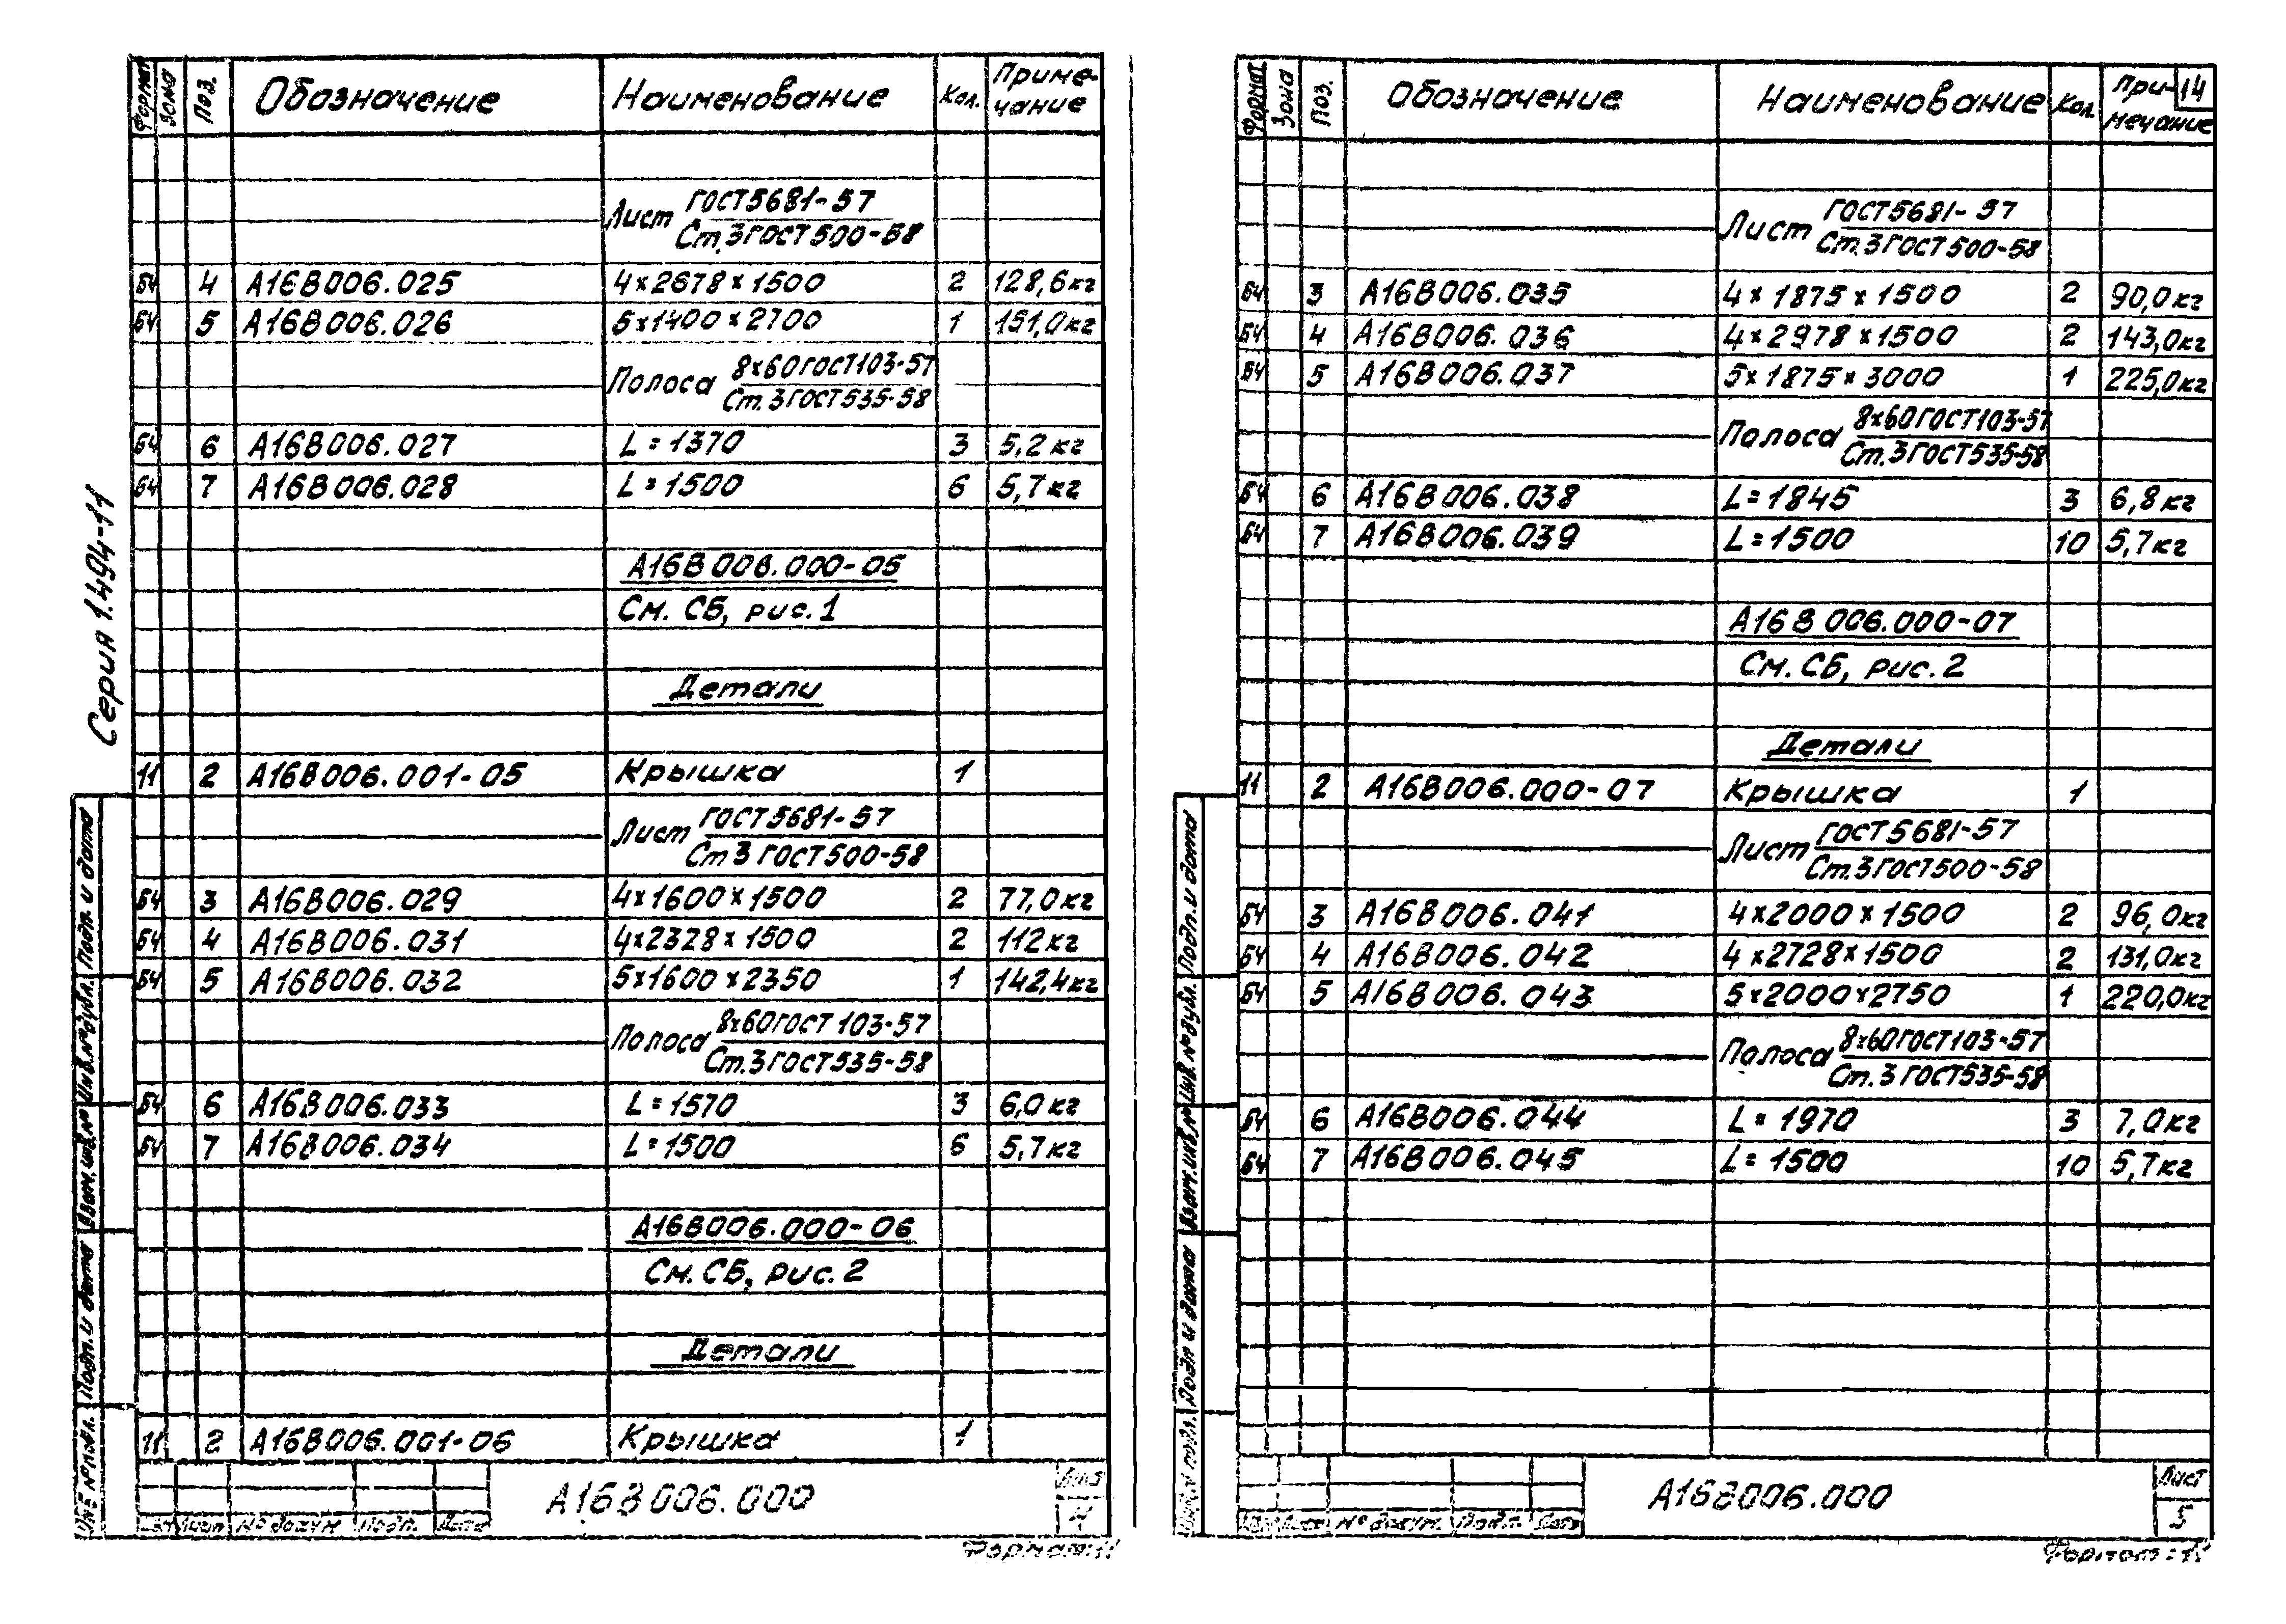 Серия 1.494-11
Формат Зона Поз. Обозначение Наименование Кол. Приме-
чание
Лист ГОСТ5681-57
Ст.3ГОСТ500-58
БЧ 4 А16В006.025 4х2678х1500 2 128,6кг
БЧ 5 А16В006.026 5х1400х2700 1 151,0кг
Полоса 8х60ГОСТ103-57
Ст.3ГОСТ535-58
БЧ 6 А16В006.027 L=1370 3 5,2кг
БЧ 7 А16В006.028 L=1500 6 5,7кг
А16В006.000-05
См. СБ, рис.1
Детали
11 2 А16В006.001-05 Крышка 1
Лист ГОСТ5681-57
Ст3 ГОСТ500-58
БЧ 3 А16В006.029 4х1600х1500 2 77,0кг
БЧ 4 А16В006.031 4х2328х1500 2 112кг
БЧ 5 А16В006.032 5х1600х2350 1 142,4кг
Полоса 8х60ГОСТ 103-57
Ст.3ГОСТ535-58
БЧ 6 А16В006.033 L=1570 3 6,0кг
БЧ 7 А16В006.034 L=1500 6 5,7кг
А16В006.000-06
См. СБ, рис.2
Детали
11 2 А16В006.001-06 Крышка 1
Подп. и дата
Инв.№дубл.
Взам.инв.№
Подп. и дата
№ докум. Подп. Дата
А16В006.000
Лист
4
Формат:11
Формат Зона Поз. Обозначение Наименование Кол. При-
мечание
14
Лист ГОСТ5681-57
Ст.3ГОСТ500-58
БЧ 3 А16В006.035 4х1875х1500 2 90,0кг
БЧ 4 А16В006.036 4х2978х1500 2 143,0кг
БЧ 5 А16В006.037 5х1875х3000 1 225,0кг
Полоса 8х60ГОСТ103-57
Ст.3ГОСТ535-58
БЧ 6 А16В006.038 L=1845 3 6,8кг
БЧ 7 А16В006.039 L=1500 10 5,7кг
А16В006.000-07
См. СБ, рис.2
Детали
11 2 А16В006.000-07 Крышка 1
Лист ГОСТ5681-57
Ст.3ГОСТ500-58
БЧ 3 А16В006.041 4х2000х1500 2 96,0кг
БЧ 4 А16В006.042 4х2728х1500 2 131,0кг
БЧ 5 А16В006.043 5х2000х2750 1 220,0кг
Полоса 8х60ГОСТ103-57
Ст.3ГОСТ535-58
БЧ 6 А16В006.044 L=1970 3 7,0кг
БЧ 7 А16В006.045 L=1500 10 5,7кг
Подп. и дата
Инв.№дубл.
Взам.инв.№
Подп. и дата
№ докум. Подп. Дата
А16В006.000
Лист
5
Формат:11